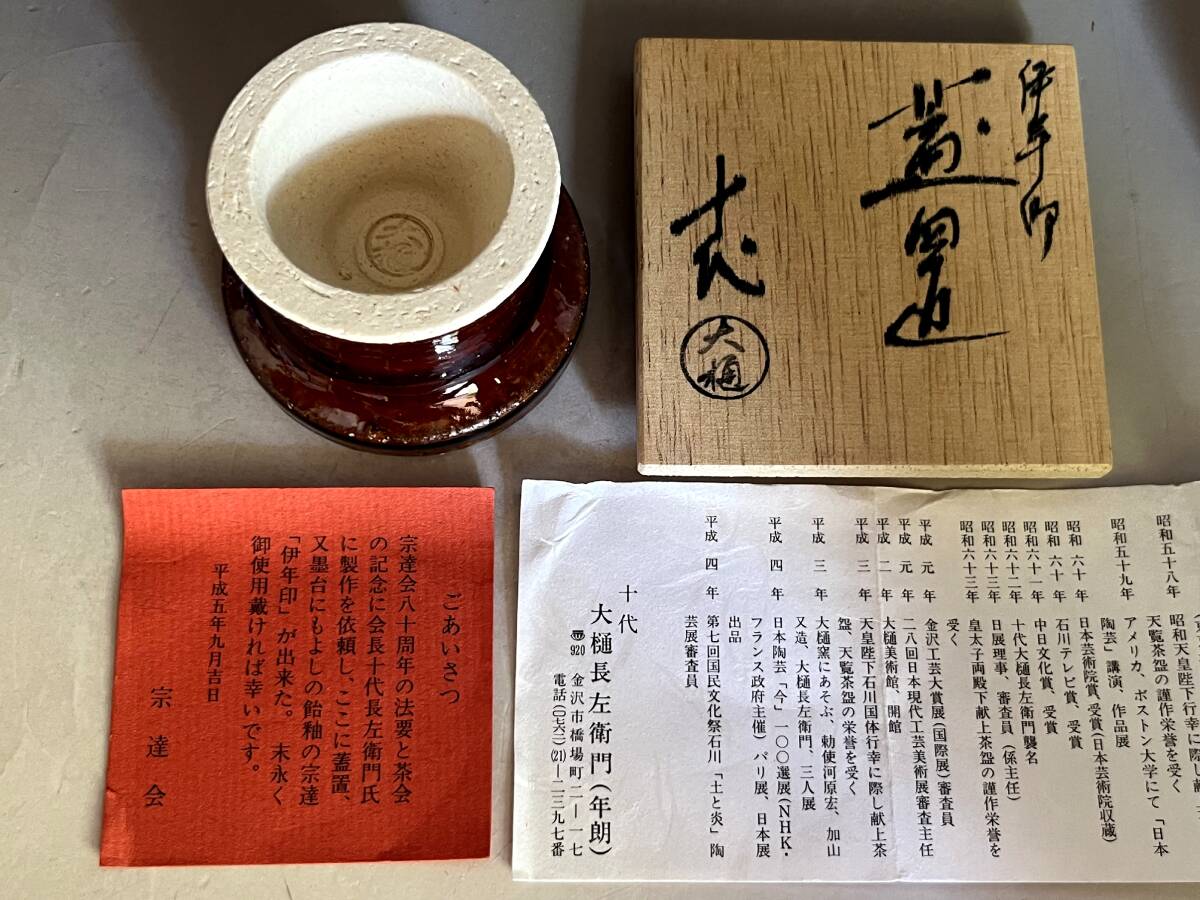 伊年印
蓋置
十代
大樋
ごあいさつ
宗達会八十周年の法要と茶会
の記念に会長十代長左衛門氏
に製作を依頼し、ここに蓋置、
又墨台にもよしの飴釉の宗達
「伊年印」が出来た。 末永く
御使用戴ければ幸いです。
平成五年九月吉日
宗達会
昭和五十八年 昭和天皇陛下行幸に際し献
天覧茶盌の謹作栄誉を受く
昭和五十九年 アメリカ、ボストン大学にて「日本
陶芸」講演、作品展
昭和 六十 年 日本芸術院賞、受賞(日本芸術院収蔵)
昭和 六十 年 石川テレビ賞、受賞
昭和六十一年 中日文化賞、受賞
昭和六十二年 十代大樋長左衛門襲名
昭和六十三年 日展理事、審査員(係主任)
昭和六十三年 皇太子両殿下献上茶盌の謹作栄誉を
受く
平成 元 年 金沢工芸大賞展(国際展)審査員
平成 元 年 二八回日本現代工芸美術展審査主任
平成 二 年 大樋美術館、開館
平成 三 年 天皇陛下石川国体行幸に際し献上茶
盌、天覧茶盌の栄誉を受く
平成 三 年 大樋窯にあそぶ、勅使河原宏、加山
又造、大樋長左衛門、三人展
平成 四 年 日本陶芸「今」一〇〇選展(NHK・
フランス政府主催)パリ展、日本展
出品
平成 四 年 第七回国民文化祭石川「土と炎」陶
芸展審査員
十代
大樋長左衛門(年朗)
〒920 金沢市橋場町二—一七
電話(〇七六二)(21)—二三九七番